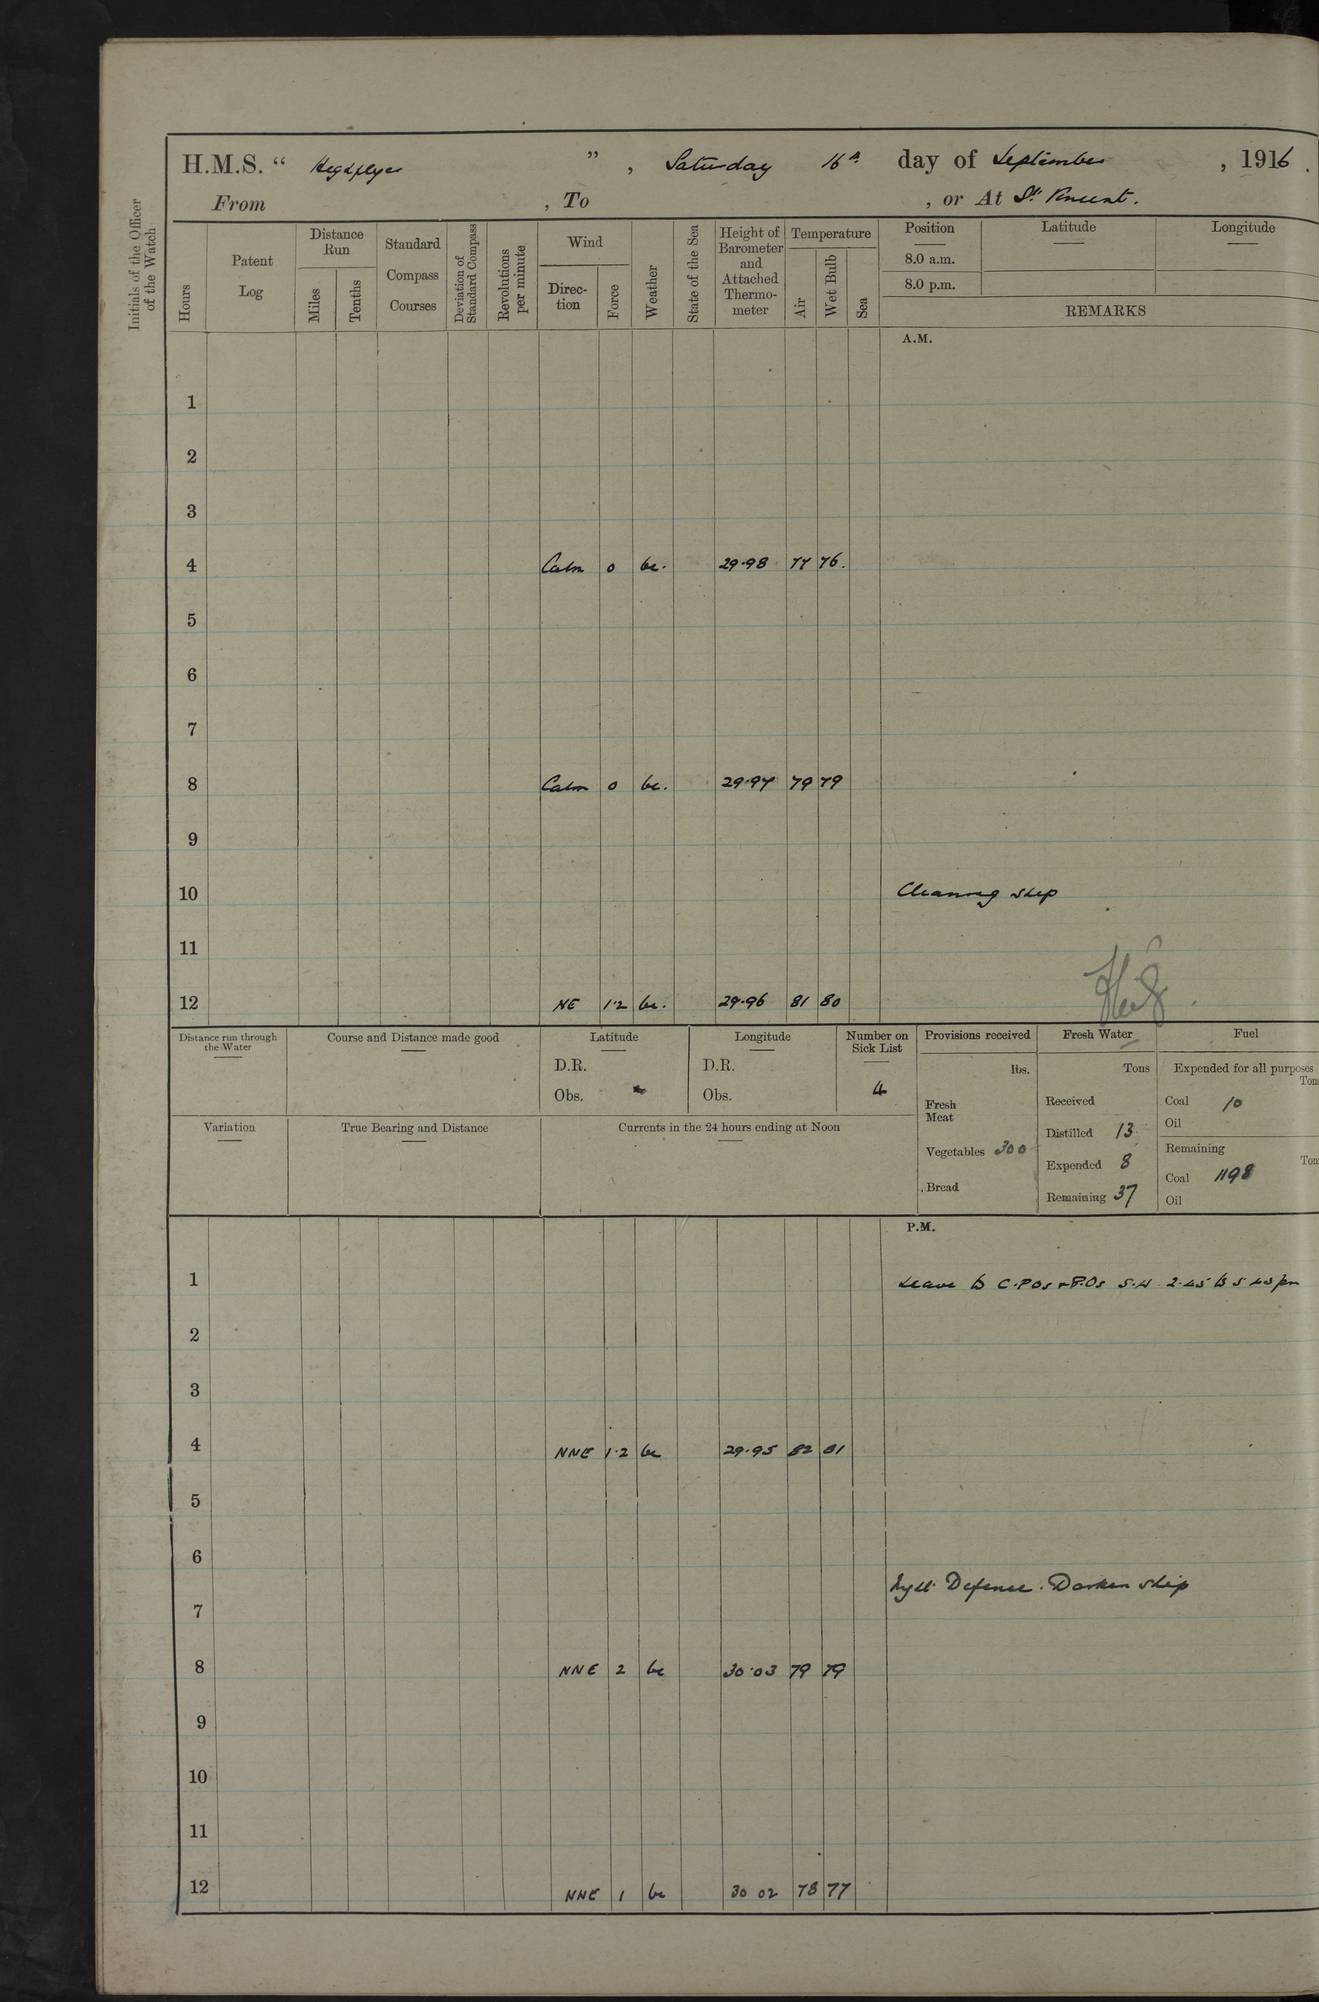 H.M.S. " Highflyer ", Saturday 16th day of September, 1916.
From , To , or At St. Vincent.
Initials of the Officer of the Watch
Hours
Patent Log
Distance Run
Miles
Tenths
Standard Compass Courses
Deviation of Standard Compass
Revolutions per minute
Wind
Direc-tion
Force
Weather
State of the Sea
Height of Barometer and Attached Thermo-meter
Temperature
Air
Wet Bulb
Sea
Position Latitude Longitude
8.0 a.m.
8.0 p.m.
REMARKS
A.M.
1
2
3
4 Calm 0 bc. 29.98 77 76.
5
6
7
8 Calm 0 bc. 29.97 79 79
9
10 Cleaning ship
11
12 NE 1.2 bc. 29.96 81 80
Distance run through the Water
Course and Distance made good
Latitude
D.R.
Obs.
Longitude
D.R.
Obs.
Number on Sick List
4
Provisions received
lbs.
Fresh Meat
Vegetables 300
Bread
Fresh Water
Tons
Received
Distilled 13
Expended 8
Remaining 37
Fuel
Expended for all purposes
Tons
Coal 10
Oil
Remaining
Tons
Coal 1198
Oil
Variation
True Bearing and Distance
Currents in the 24 hours ending at Noon
P.M.
1 Leave to C.P.Os & P.Os 2.45 to 5 45 pm
2
3
4 NNE 1.2 bc 29.95 82 81
5
6
Night Defence. Darken ship
7
8 NNE 2 bc 30.03 79 79
9
10
11
12 NNE 1 bc 30 02 78 77